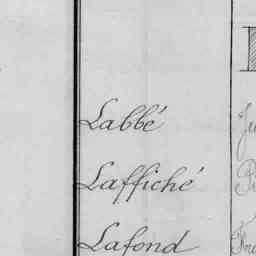 Labbé
Laffiché
Lafond